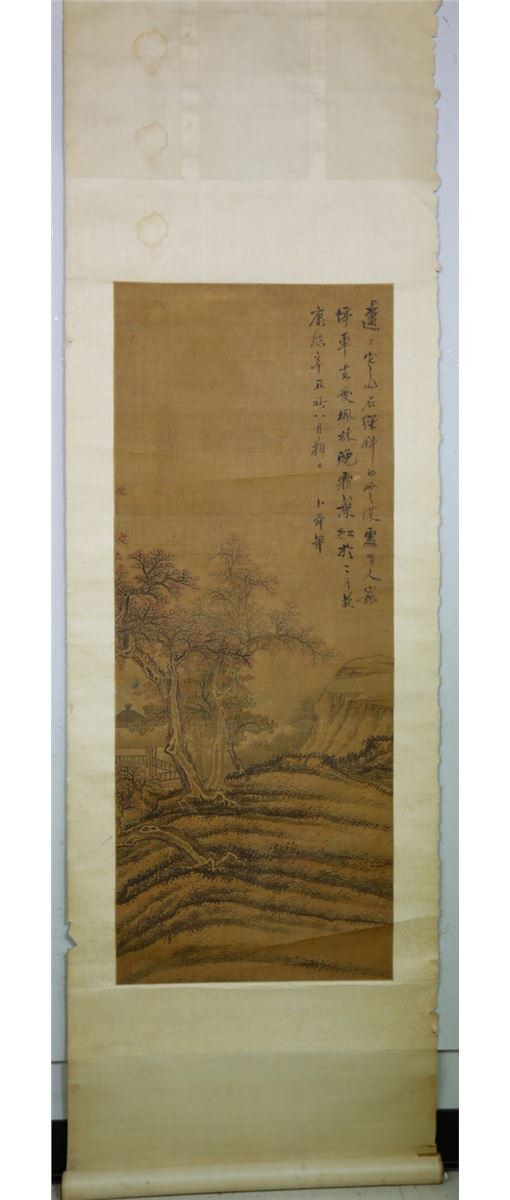 遠上寒山石徑斜白雲深處有人家
停車坐愛楓林晚霜葉紅於二月花
康熙辛丑秋八月